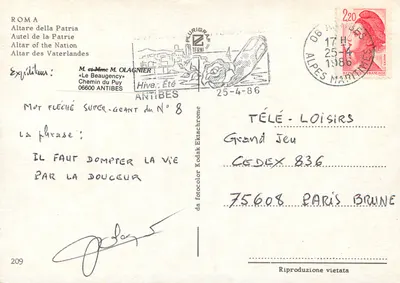 ROMA
Altare della Patria
Autel de la Patrie
Altar of the Nation
Altar des Vaterlandes
Expéditeur :
M. et Mme M. OLAGNIER
«Le Beaugency»
Chemin du Puy
06600 ANTIBES
Hiver. Été
ANTIBES
25-4-86
2,20
06
17 H
25-4
1986
ALPES MARITIMES
MOT FLÉCHÉ SUPER-GEANT du N° 8
La phrase :
IL FAUT DOMPTER LA VIE
PAR LA DOUCEUR
da fotocolor Kodak Ektachrome
TÉLÉ-LOISIRS
Grand Jeu
CEDEX 836
75608 PARIS BRUNE
209
Riproduzione vietata